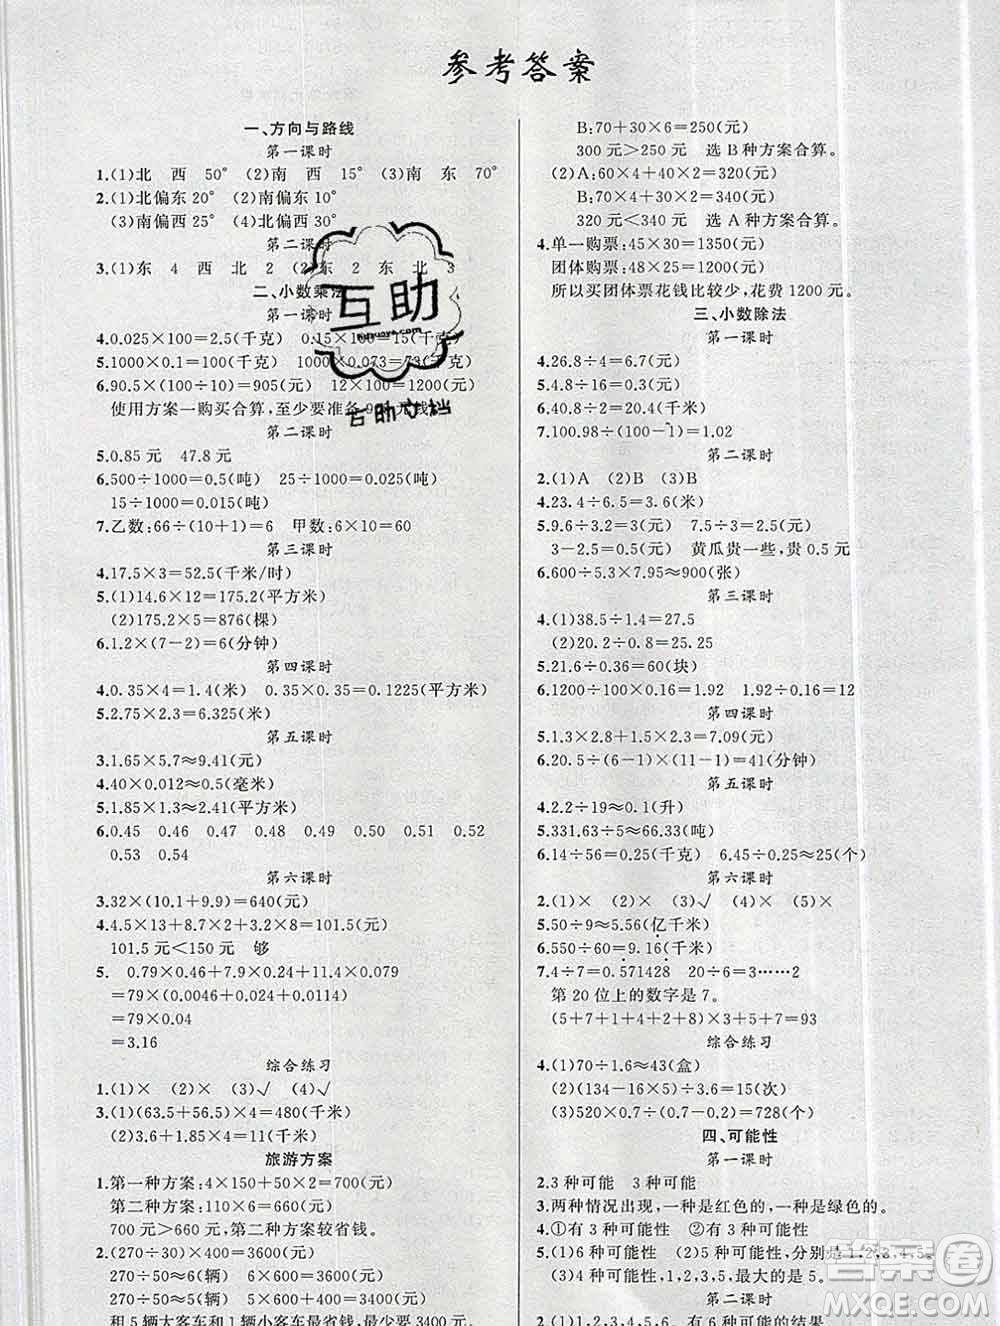 参考答案
一、方向与路线
第一课时
1.(1)北 西 50° (2)南 西 15° (3)南 东 70°
2.(1)北偏东20° (2)南偏东10°
(3)南偏西25° (4)北偏西30°
第二课时
3.(1)东 4 西 北 2 (2)东 2 东 北 3
二、小数乘法
第一课时
4.0.025×100=2.5(千克) 0.15×100=15(千克)
5.1000×0.1=100(千克) 1000×0.073=73(千克)
6.90.5×(100÷10)=905(元) 12×100=1200(元)
使用方案一购买合算,至少要准备905元钱。
第二课时
5.0.85元 47.8元
6.500÷1000=0.5(吨) 25÷1000=0.025(吨)
15÷1000=0.015(吨)
7.乙数:66÷(10+1)=6 甲数:6×10=60
第三课时
4.17.5×3=52.5(千米/时)
5.(1)14.6×12=175.2(平方米)
(2)175.2×5=876(棵)
6.1.2×(7-2)=6(分钟)
第四课时
4.0.35×4=1.4(米) 0.35×0.35=0.1225(平方米)
5.2.75×2.3=6.325(米)
第五课时
3.1.65×5.7≈9.41(元)
4.40×0.012≈0.5(毫米)
5.1.85×1.3≈2.41(平方米)
6.0.45 0.46 0.47 0.48 0.49 0.50 0.51 0.52
0.53 0.54
第六课时
3.32×(10.1+9.9)=640(元)
4.4.5×13+8.7×2+3.2×8=101.5(元)
101.5元<150元 够
5. 0.79×0.46+7.9×0.24+11.4×0.079
=79×(0.0046+0.024+0.0114)
=79×0.04
=3.16
综合练习
1.(1)× (2)× (3)√ (4)√
3.(1)(63.5+56.5)×4=480(千米)
(2)3.6+1.85×4=11(千米)
旅游方案
1.第一种方案:4×150+50×2=700(元)
第二种方案:110×6=660(元)
700元>660元,第二种方案较省钱。
2.(270÷30)×400=3600(元)
270÷50≈5(辆) 6×600=3600(元)
270÷50≈5(辆) 5×600+400=3400(元)
租5辆大客车和1辆小客车最省钱,最少要3400元。
B:70+30×6=250(元)
300元>250元 选B种方案合算。
(2)A:60×4+40×2=320(元)
B:70×4+30×2=340(元)
320元<340元 选A种方案合算。
4.单一购票:45×30=1350(元)
团体购票:48×25=1200(元)
所以买团体票花钱比较少,花费1200元。
三、小数除法
第一课时
4.26.8÷4=6.7(元)
5.4.8÷16=0.3(元)
6.40.8÷2=20.4(千米)
7.100.98÷(100-1)=1.02
第二课时
2.(1)A (2)B (3)B
4.23.4÷6.5=3.6(米)
5.9.6÷3.2=3(元) 7.5÷3=2.5(元)
3-2.5=0.5(元) 黄瓜贵一些,贵0.5元
6.600÷5.3×7.95≈900(张)
第三课时
4.(1)38.5÷1.4=27.5
(2)20.2÷0.8=25.25
5.21.6÷0.36=60(块)
6.1200÷100×0.16=1.92 1.92÷0.16=12
第四课时
5.1.3×2.8+1.5×2.3=7.09(元)
6.20.5÷(6-1)×(11-1)=41(分钟)
第五课时
4.2.2÷19≈0.1(升)
5.331.63÷5≈66.33(吨)
6.14÷56=0.25(千克) 6.45÷0.25≈25(个)
第六课时
2.(1)× (2)× (3)√ (4)× (5)×
5.50÷9≈5.56(亿千米)
6.550÷60=9.16(千米)
7.4÷7=0.571428 20÷6=3……2
第20位上的数字是7。
(5+7+1+4+2+8)×3+5+7=93
综合练习
4.(1)70÷1.6≈43(盒)
(2)(134-16×5)÷3.6=15(次)
(3)520×0.7÷(0.7-0.2)=728(个)
四、可能性
第一课时
2.3种可能 3种可能
3.两种情况出现,一种是红色的,一种是绿色的。
4.①有3种可能性 ②有3种可能性
5.(1)6种可能性 (2)5种可能性,分别是1,2,3,4,5。
(3)4种可能性,1,2,3,5,最大的是5。
第二课时
2.(1)有2种可能的结果 (2)有6种可能的结果
互助
互助文档
答案圈
MXQE.COM